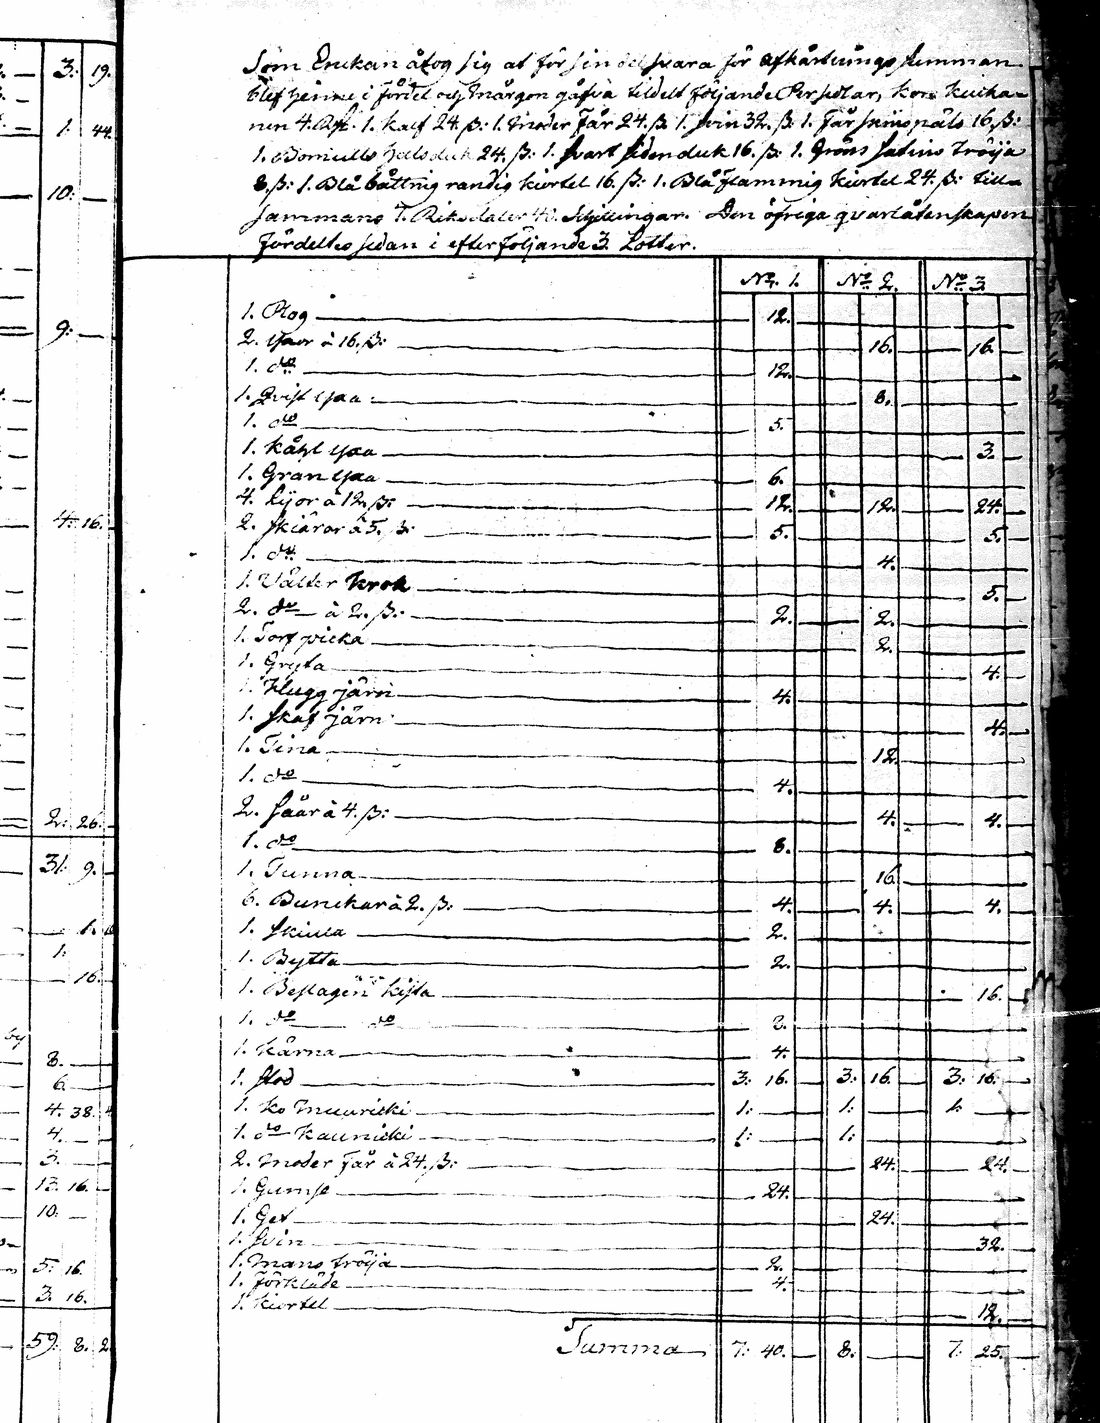 3: 19.
1. 44.
10: —
9: —
4: 16.
2: 26.
31: 9.
1.
1:
16.
8. —
6. —
4. 38.
4. —
3. —
13: 16. —
10. —
5: 16.
3: 16.
59: 8. 2
Som Enkan åtog sig at för sin del svara för afkårtnings summan
blef henne i fördel och mårgon gåfva tildelt följande Persedlar, kon
nen 4. Rdr. 1. kalf 24. ß: 1. moder Får 24. ß 1. Svin 32. ß 1. Får skinspäls 16. ß:
1. Bomulls halsduk 24. ß: 1. svart sidenduk 16. ß: 1. Gröns Satins tröija
8. ß: 1. Blå båttnig randig kiortel 16. ß: 1. Blå flammig kiortel 24. ß: till-
sammans 7. Riksdaler 40. Skillingar. Den öfriga qvarlåtenskapen
fördeltes sedan i efterföljande 3. Lotter.
No. 1. No. 2. No. 3.
1. Plog 12.
2. Yxor à 16. ß: 16. 16.
1. do 12.
1. Qvist yxa 8.
1. do 5.
1. kåhl yxa 3.
1. Gran yxa 6.
4. Lijor à 12. ß: 12. 12. 24.
2. Skiäror à 5. ß: 5. 5.
1. do 4.
1. Välter krok 5.
2. do à 2. ß: 2. 2.
1. Torf picka 2.
1. Gryta 4.
1. Hugg järn 4.
1. Skaf järn 4.
1. Tina 12.
1. do 4.
2. Såår à 4. ß: 4. 4.
1. do 8.
1. Tunna 16.
6. Bunckar à 2. ß: 4. 4. 4.
1. Skiula 2.
1. Bytta 2.
1. Beslagen kista 16.
1. do do 8.
1. kärna 4.
1. Stod 3: 16. 3: 16. 3: 16.
1. ko Muuricki 1: 1: 1:
1. do kaunicki 1: 1:
2. moder Får à 24. ß: 24. 24.
1. Gumse 24.
1. Get 24.
1. Svin 32.
1. Mans tröija 2.
1. Förkläde 4.
1. kiortel 12.
Summa 7: 40. 8: 7: 25.